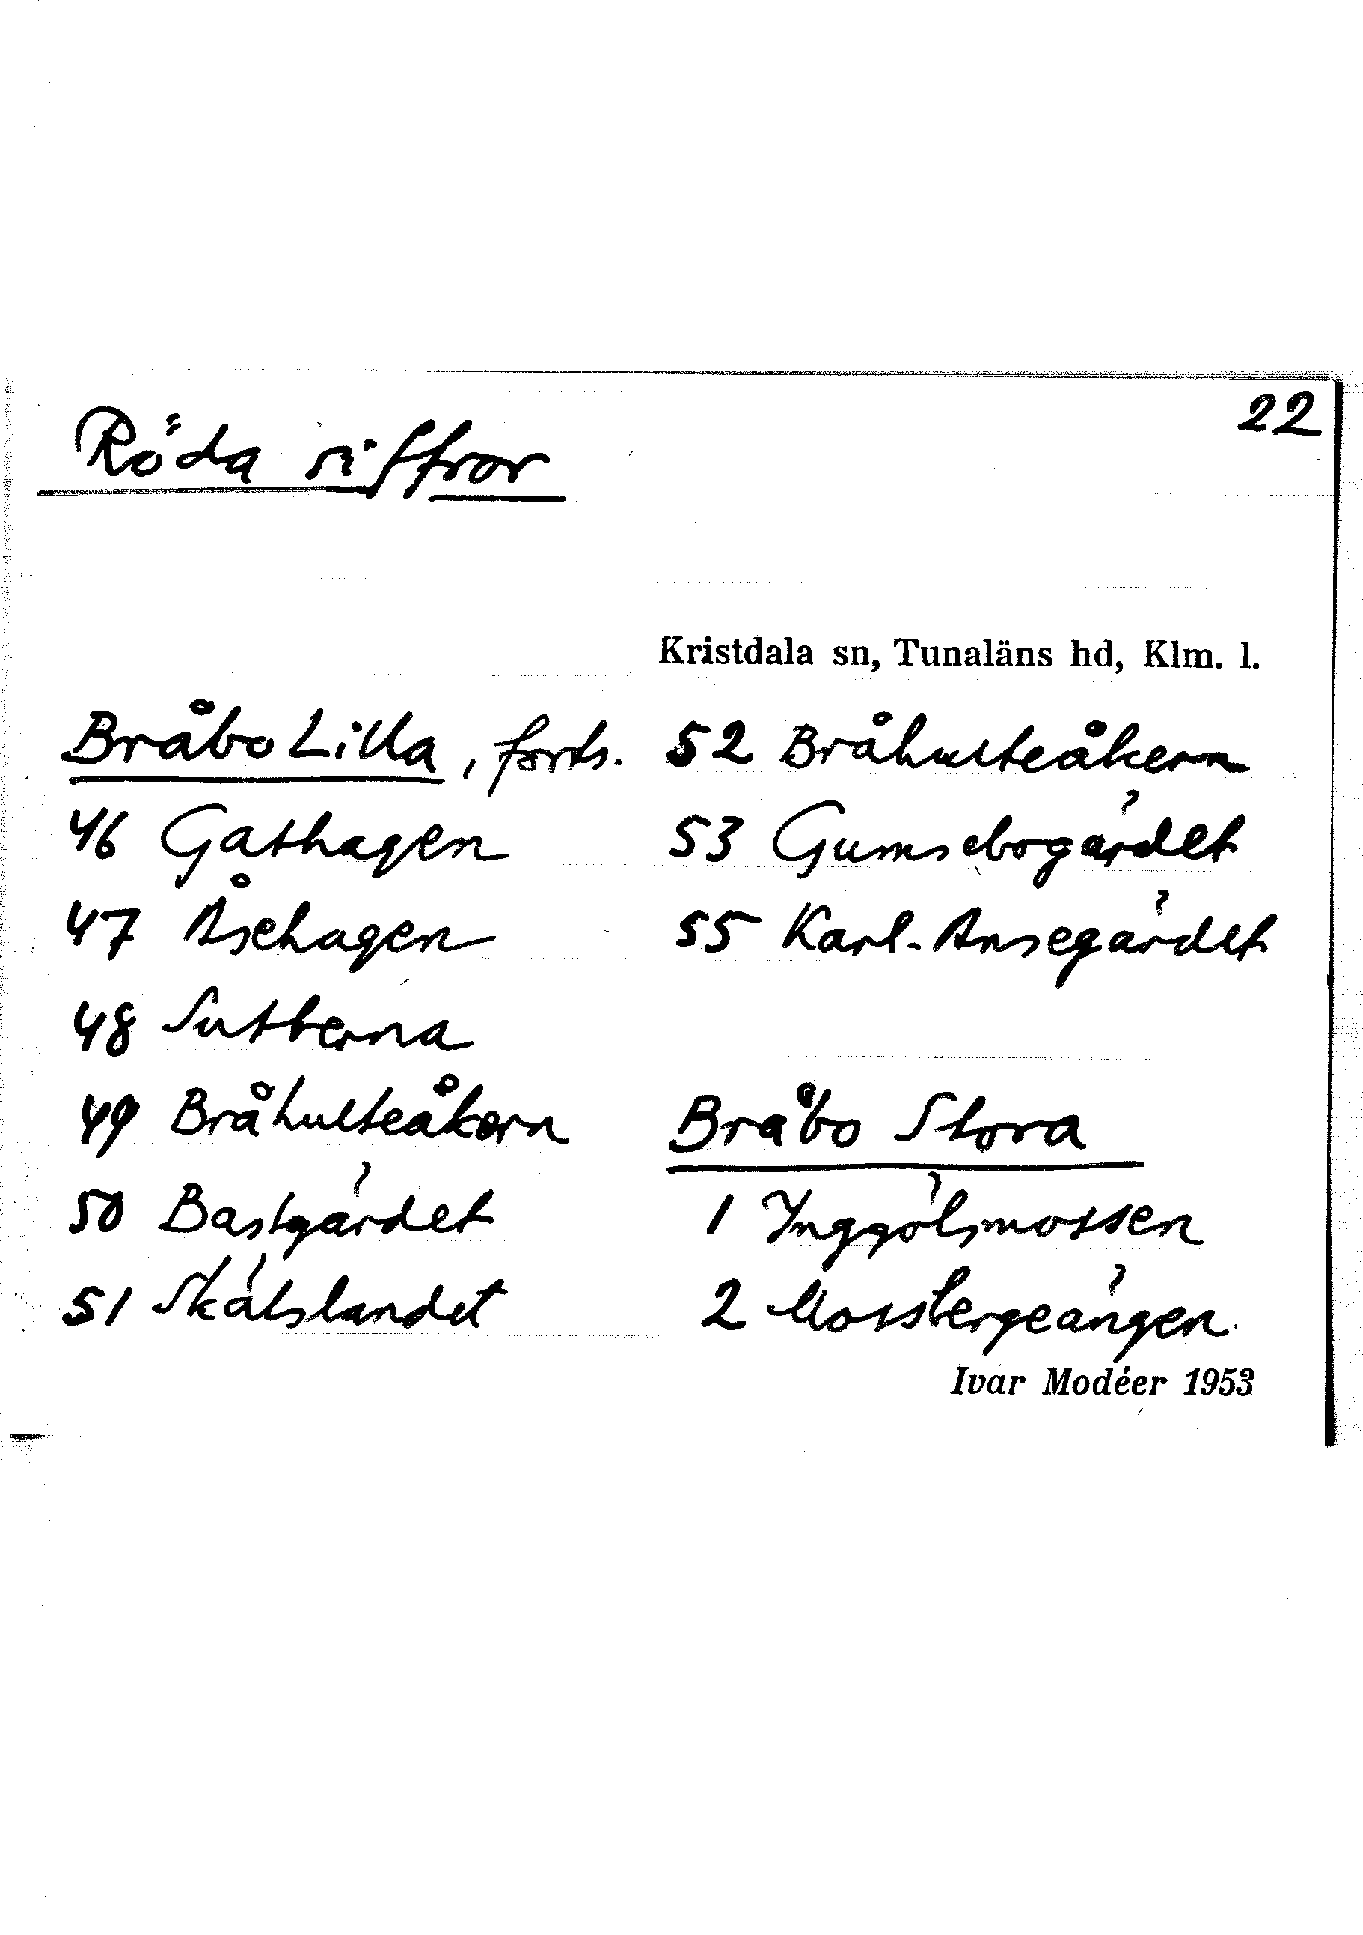 22
Röda siffror
Kristdala sn, Tunaläns hd, Klm. l.
Bråbo Lilla, forts.
46 Gathagen
47 Åsehagen
48
49 Bråhulteåkern
50 Bastgärdet
51 Skälslandet
52 Bråhulteåkern
53 Gumsebogärdet
55 Karl-Ansegärdet
Bråbo Stora
1 Ynggölsmossen
2 Mossbergeängen
Ivar Modéer 1953